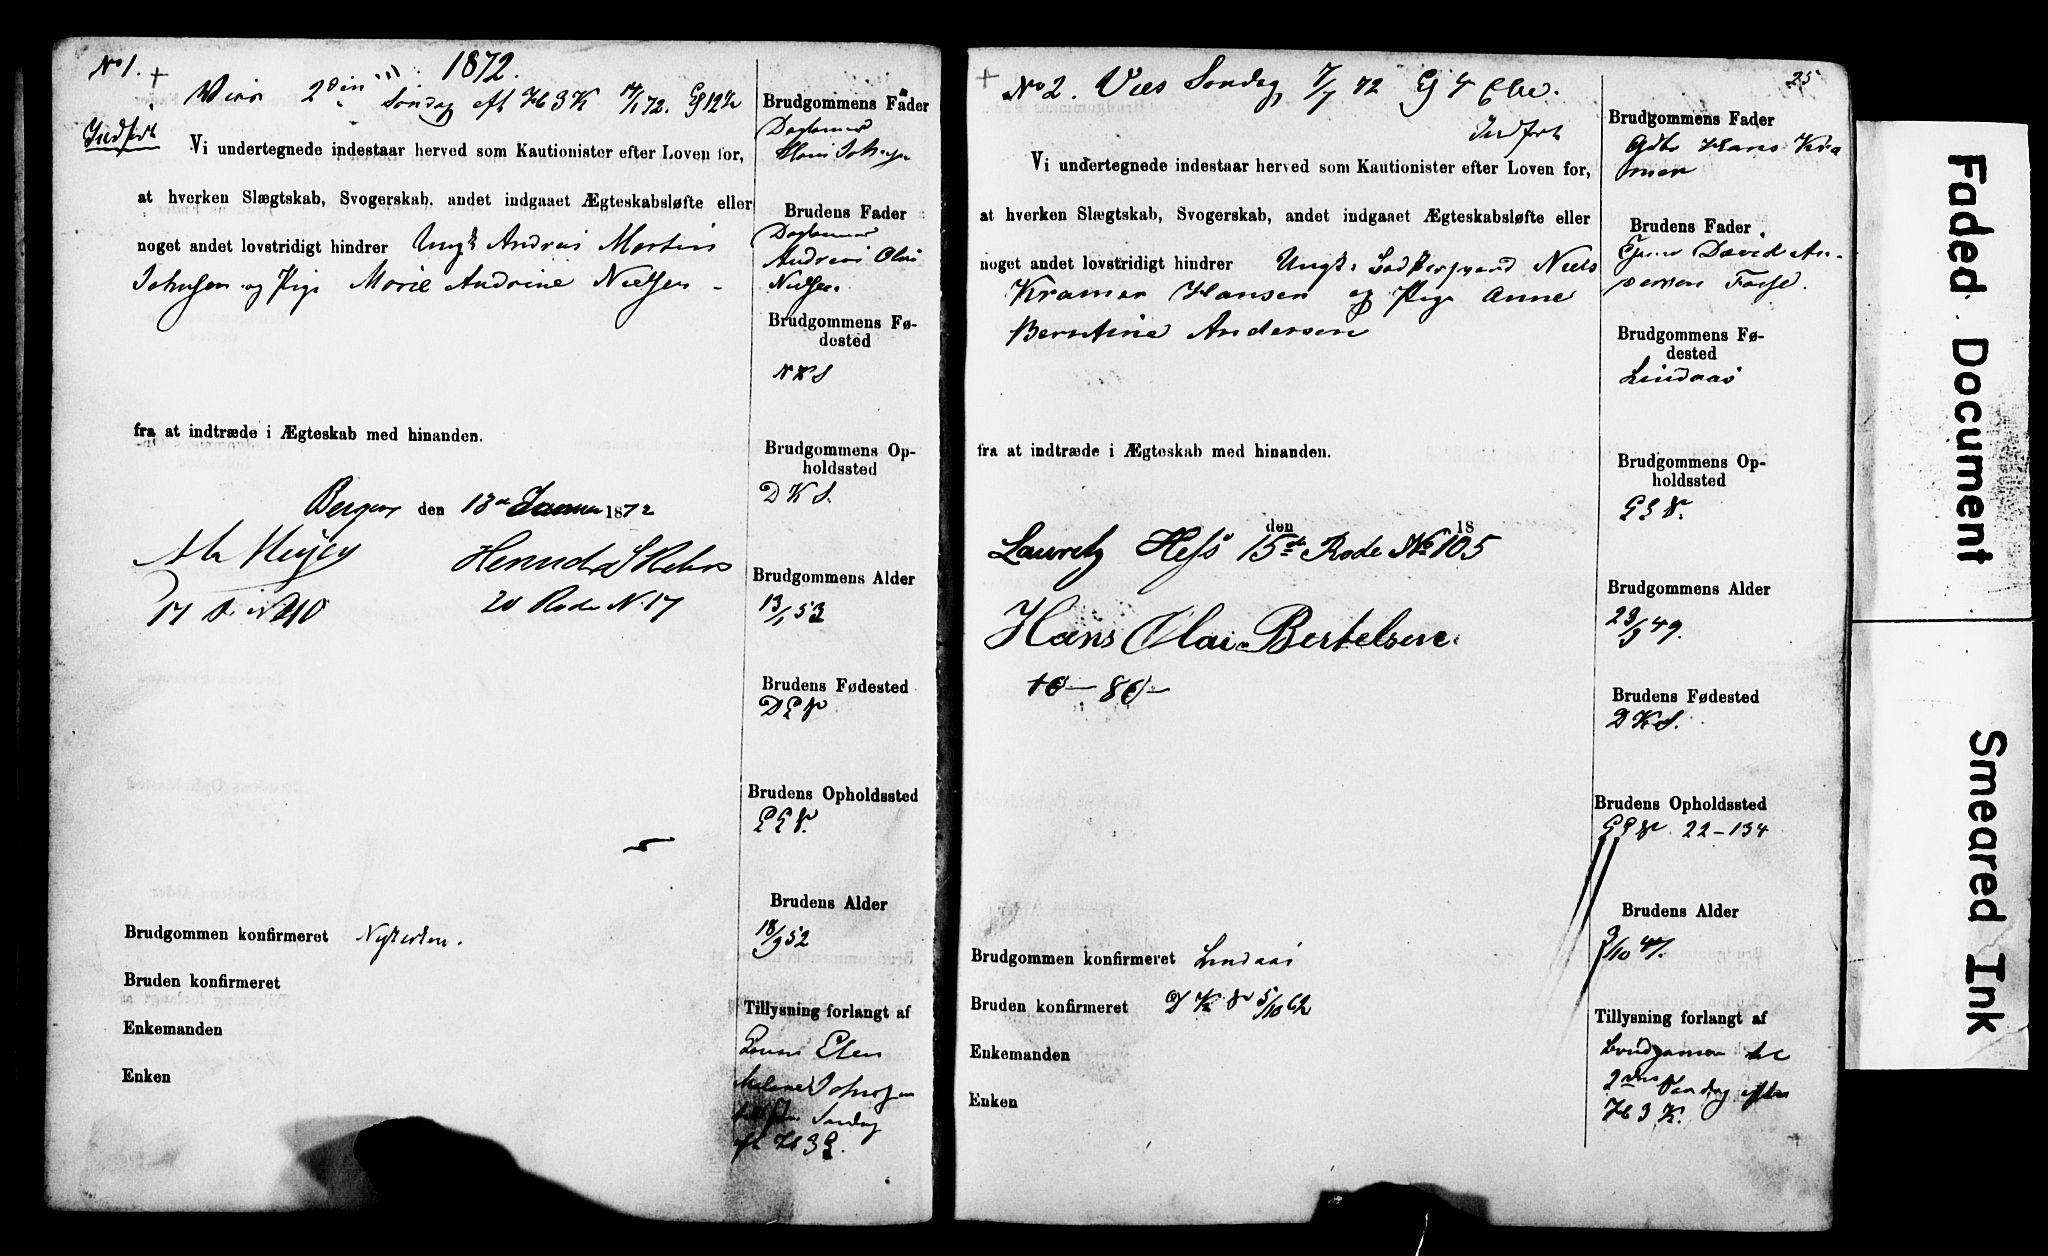 No 1.
1872.
2den Søndag eft H 3 K 14/1 72.
Indført
Vi undertegnede indestaar herved som Kautionister efter Loven for,
at hverken Slægtskab, Svogerskab, andet indgaaet Ægteskabsløfte eller
noget andet lovstridigt hindrer Ungk Andreas Martin
Johnsen og Pige Marie Andrine Nielsen
fra at indtræde i Ægteskab med hinanden.
Bergen den 13de Januar 1872
20 Rode N. 17
Brudgommen konfirmeret Nykirken.
Bruden konfirmeret
Enkemanden
Enken
Brudgommens Fader
Brudens Fader
Andreas Olai
Nielsen
Brudgommens Fø-
dested
N K S
Brudgommens Op-
holdssted
D K S.
Brudgommens Alder
13/1 53
Brudens Fødested
Brudens Opholdssted
Brudens Alder
18/9 52
Tillysning forlangt af
Johnsen
Søndag
25
No 2. Vies Søndag 7/7 72
Indført
Vi undertegnede indestaar herved som Kautionister efter Loven for,
at hverken Slægtskab, Svogerskab, andet indgaaet Ægteskabsløfte eller
noget andet lovstridigt hindrer Ungk. Niels
Kramer Hansen og Pige Anne
Berntine Andersen
fra at indtræde i Ægteskab med hinanden.
den 18
Lauretz Hess 15de Rode No 105
Hans Olai Bertelsen.
16 - 86 -
Brudgommen konfirmeret Lindaas
Bruden konfirmeret 5/10 62
Enkemanden
Enken
Brudgommens Fader
Hans Kra
mer
Brudens Fader
David An-
dersen Fosse.
Brudgommens Fø-
dested
Lindaas
Brudgommens Op-
holdssted
Brudgommens Alder
23/9 49.
Brudens Fødested
D K S.
Brudens Opholdssted
22-134
Brudens Alder
9/10 47.
Tillysning forlangt af
Brudgommen
2den Søndag efter
H 3 K.
Faded Document
Smeared Ink